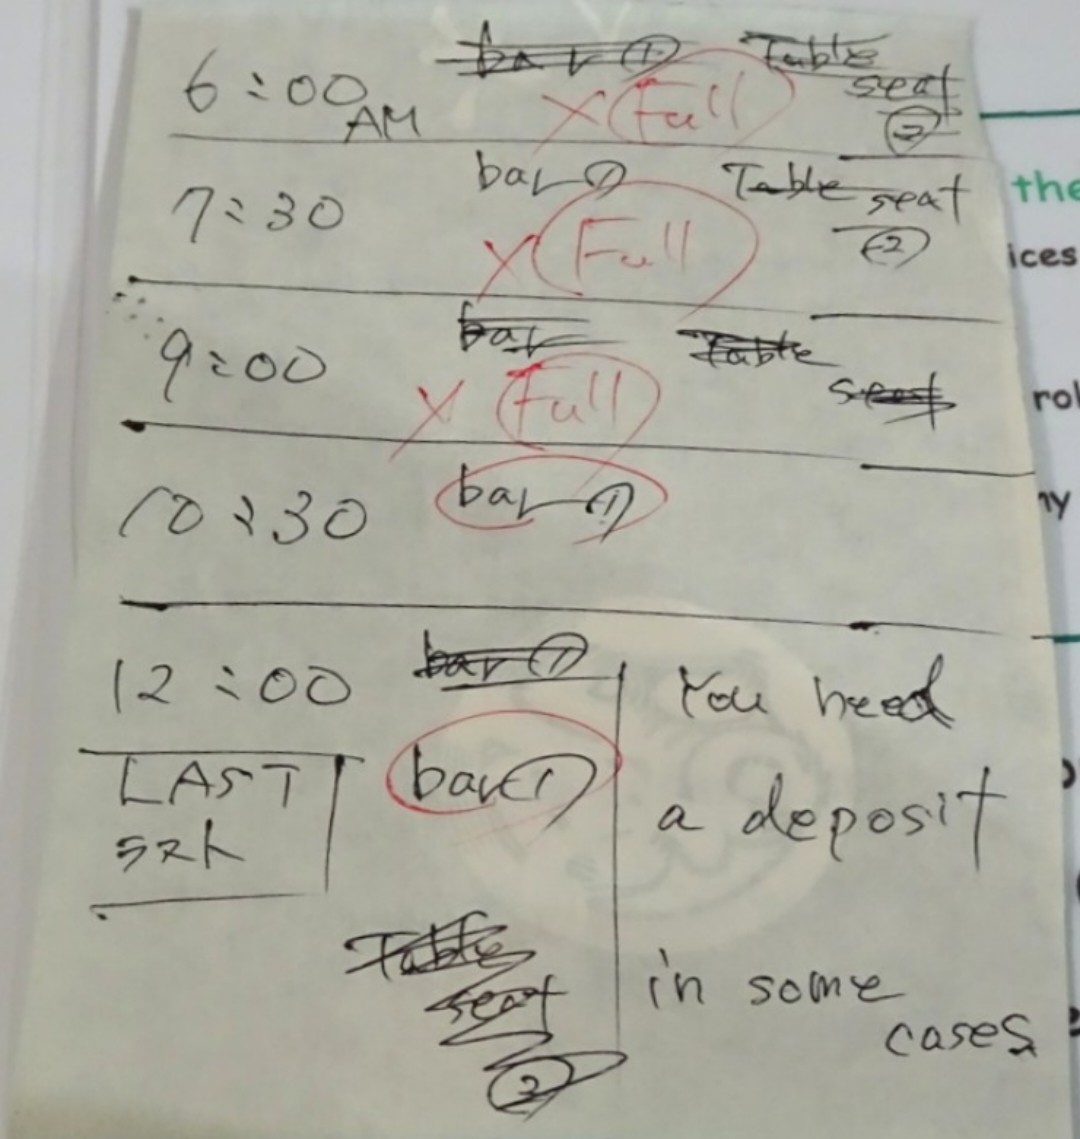 6:00 AM bar ① Table seat ②
× Full
7:30 bar ① Table seat ②
× Full
9:00 bar Table seat
× Full
10:30 bar ①
12:00 bar ①
LAST bar ①
ラスト
Table seat ②
You need
a deposit
in some
cases
the
ices
rol
ny